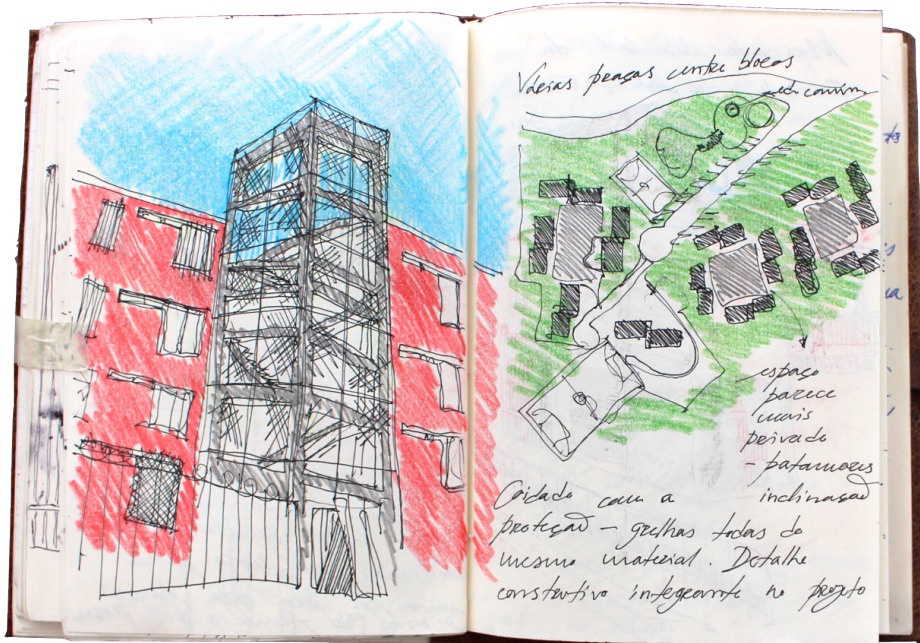 Várias praças entre blocos
espaço
parece
mais
privado
- patamares
inclinação
Cuidado com a
proteção - grelhas todas do
mesmo material. Detalhe
construtivo integrante no projeto